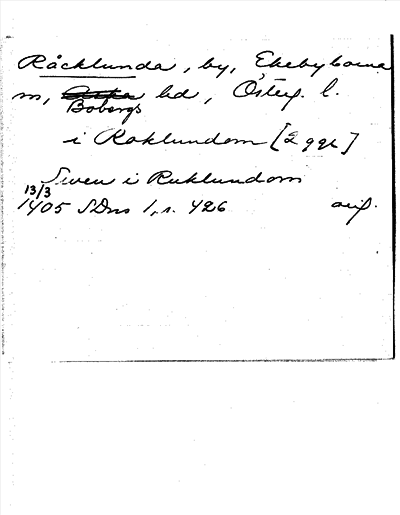 Råcklunda, by, Ekebyborna
sn, Bobergs hd, Österg. l.
i Roklundom [2 ggr]
Swen i Ruklundom
13/3
1405 SDns 1, s. 426 orig.